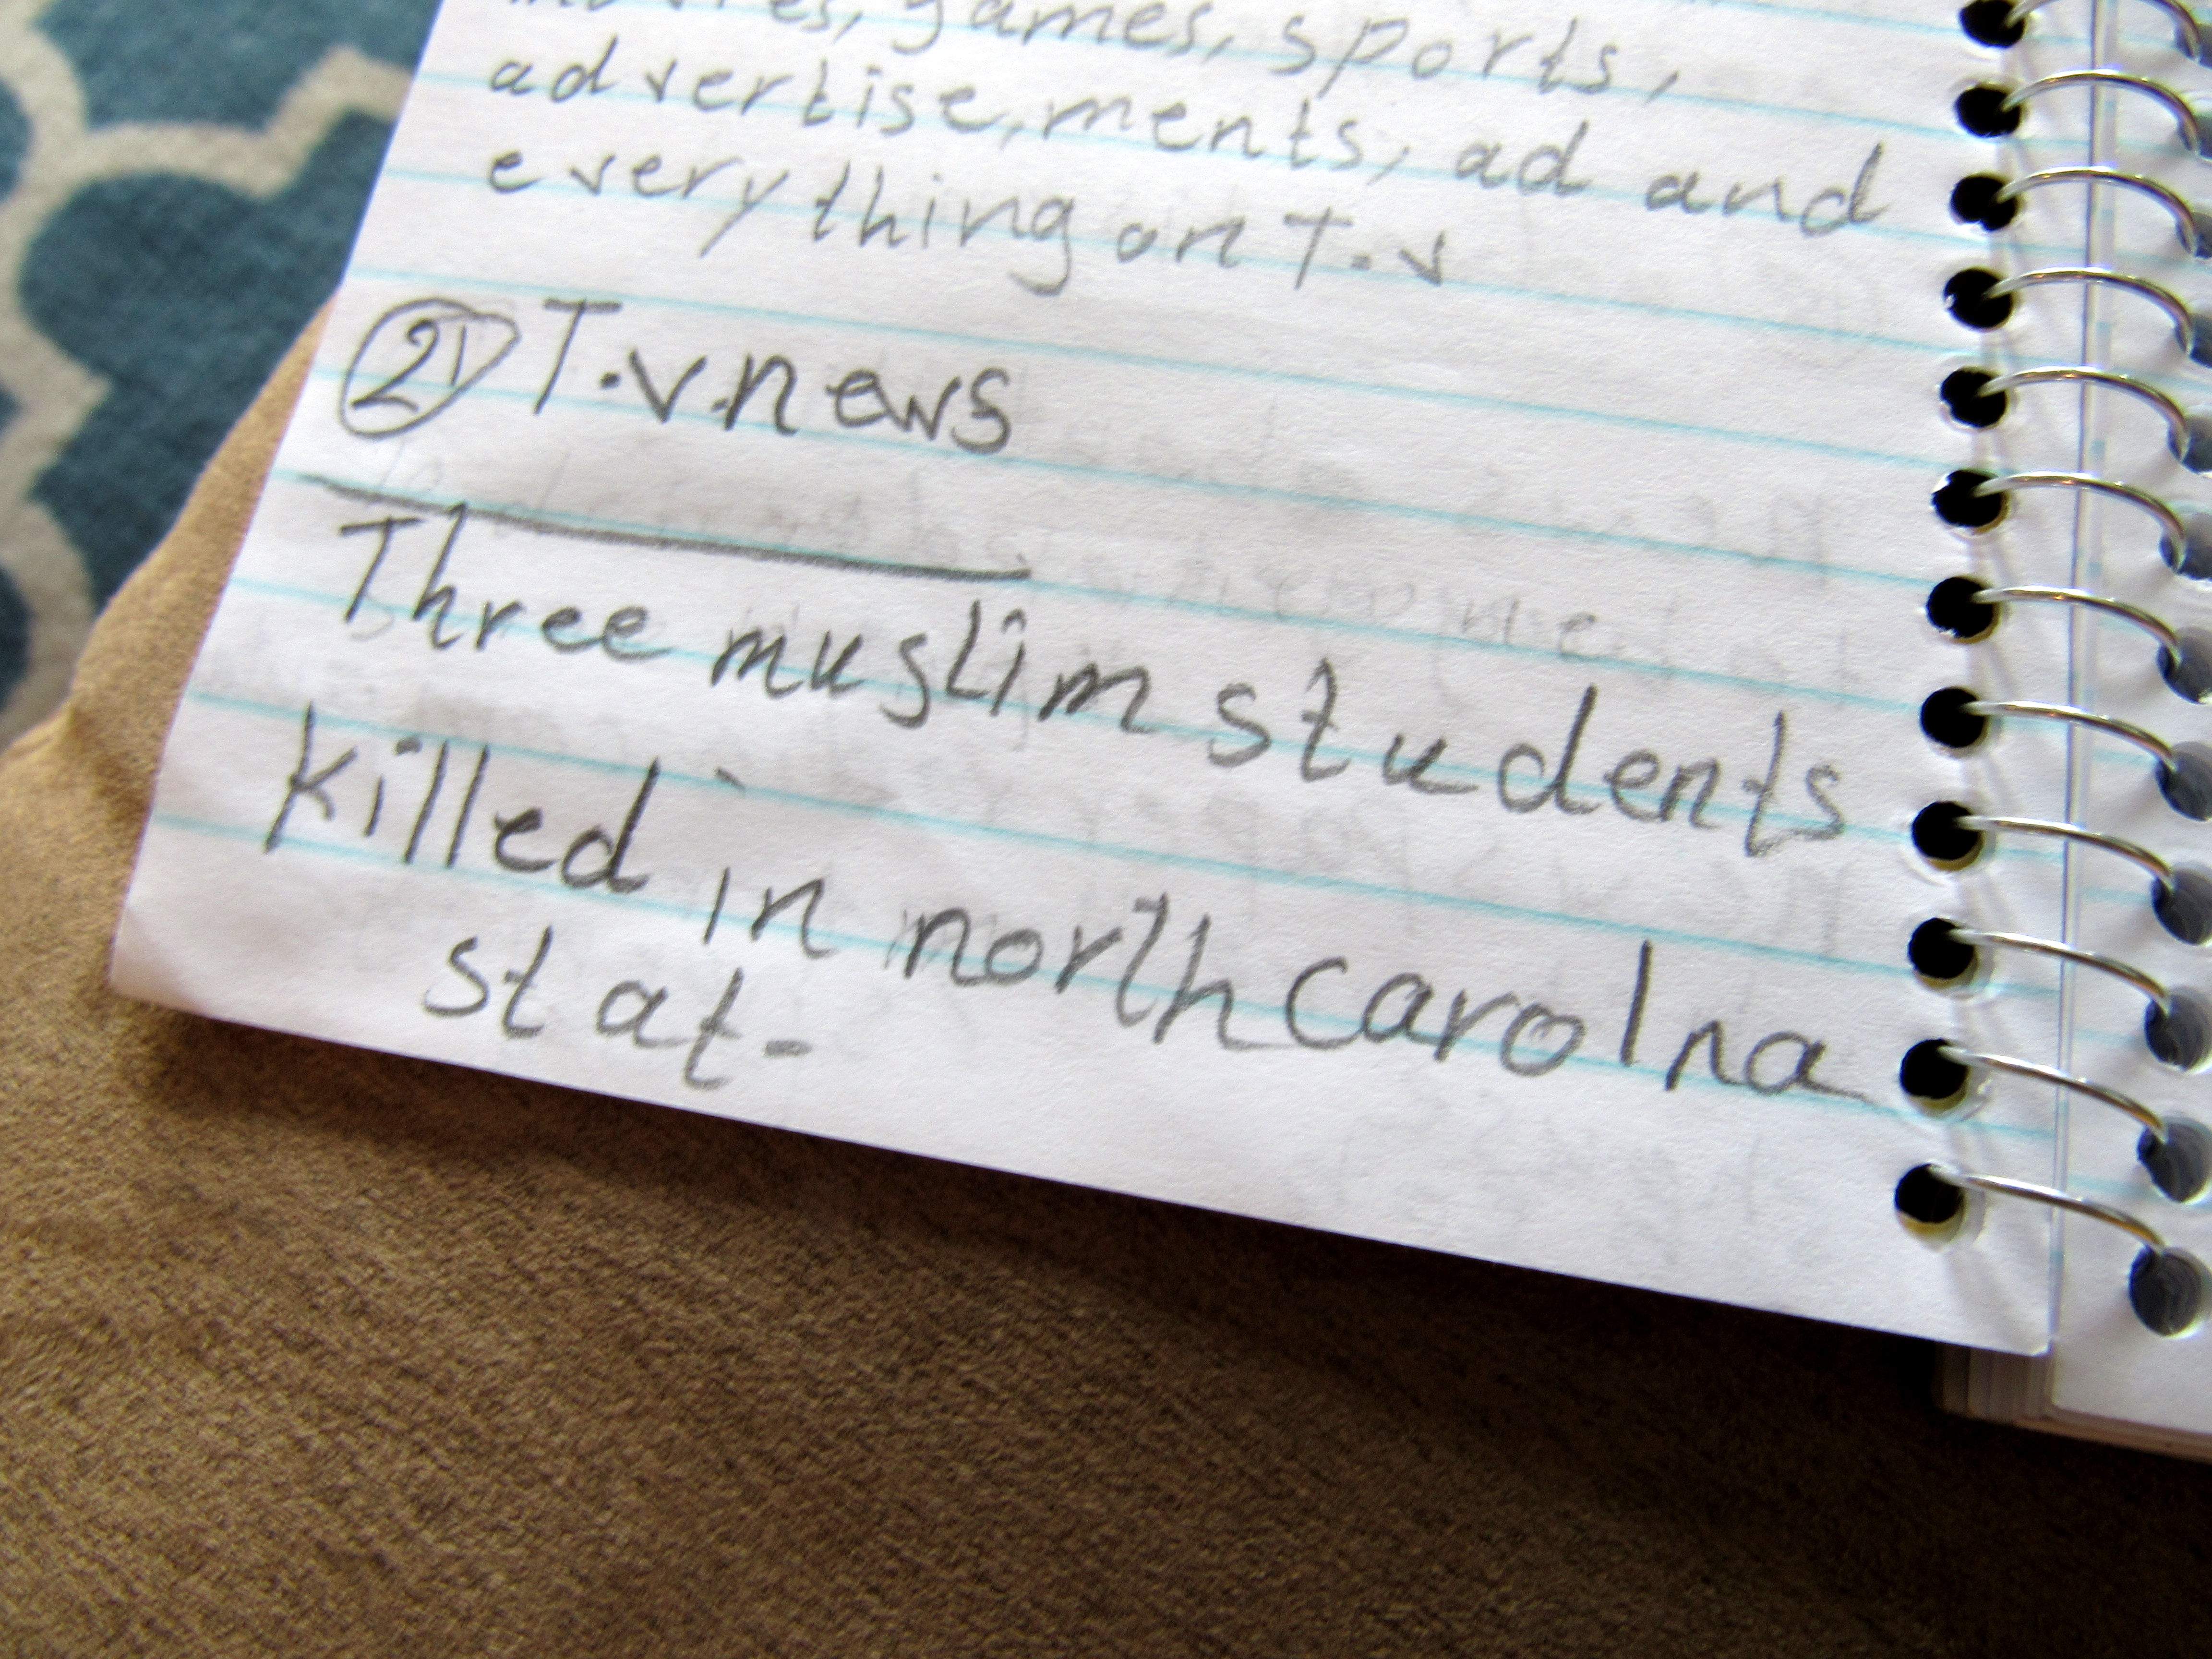 movies, games, sports,
advertise,ments, ad and
everything on T.v
2 T.v.news
Three muslim students
killed in north carolna
stat-